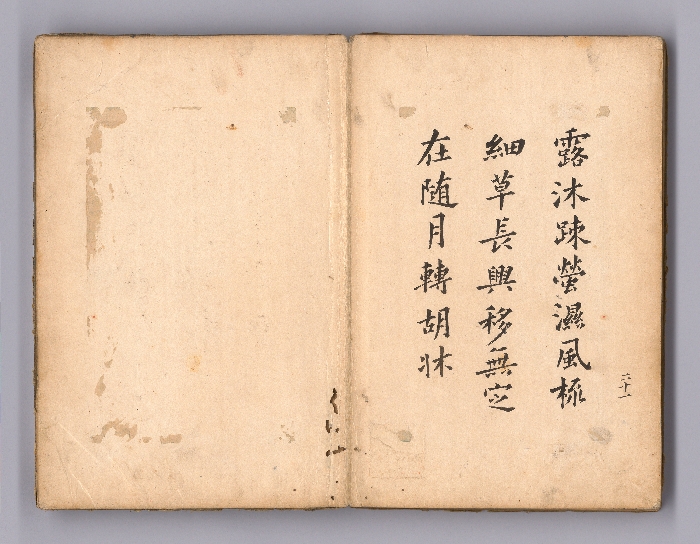 露沐踈螢濕風梳
細草長興移無定
在随月轉胡牀
六十一